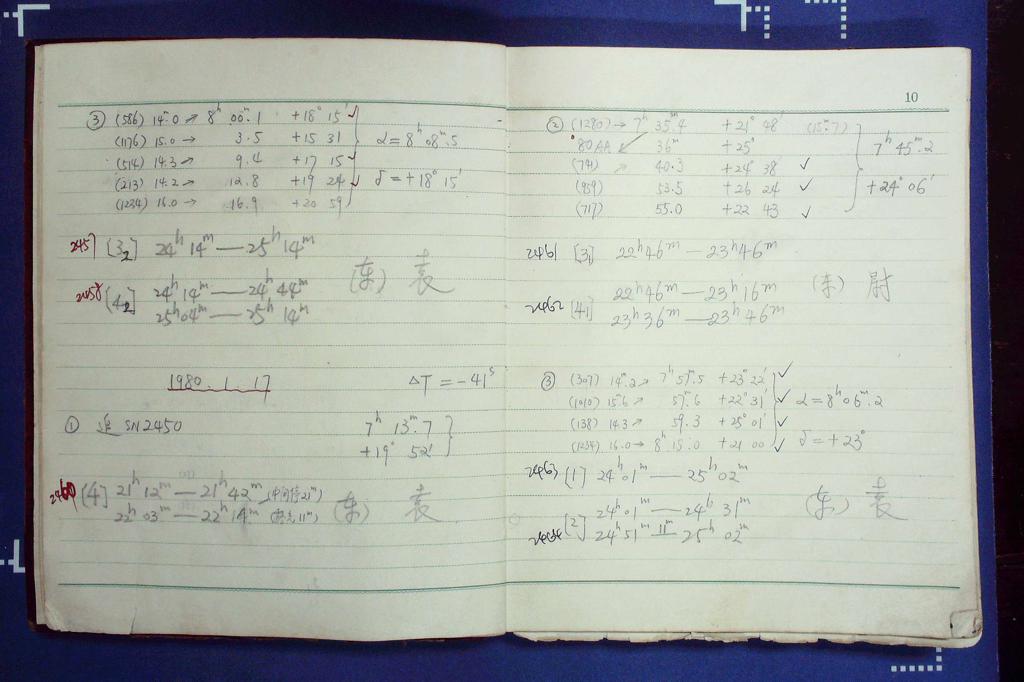 ③ (586) 14.0 → 8ʰ 00ᵐ.1 +18° 15′ ✓
(1176) 15.0 → 3.5 +15 31
α = 8ʰ 08ᵐ.5
(514) 14.3 → 9.4 +17 15 ✓
(213) 14.2 → 12.8 +19 24 ✓
δ = +18° 15′
(1234) 16.0 → 16.9 +20 59
2457 [3₂] 24ʰ 14ᵐ — 25ʰ 14ᵐ
2458 [4₂] 24ʰ 14ᵐ — 24ʰ 44ᵐ
25ʰ 04ᵐ — 25ʰ 14ᵐ
(东) 袁
1980.1.17 ΔT = -41ˢ
① SN2450 7ʰ 13ᵐ.7
+19° 52′
2460 [4] 21ʰ 12ᵐ — 21ʰ 42ᵐ (中间停21ᵐ)
22ʰ 03ᵐ — 22ʰ 14ᵐ
(东) 袁
10
② (1280) → 7ʰ 35ᵐ.4 +21° 48′ (15ᵐ.7)
80AA 36ᵐ +25°
7ʰ 45ᵐ.2
(741) → 40.3 +24° 38′ ✓
(959) 53.5 +26 24 ✓
+24° 06′
(717) 55.0 +22 43 ✓
2461 [3₁] 22ʰ 46ᵐ — 23ʰ 46ᵐ
2462 [4₁] 22ʰ 46ᵐ — 23ʰ 16ᵐ
23ʰ 36ᵐ — 23ʰ 46ᵐ
(东) 尉
③ (307) 14ᵐ.2 → 7ʰ 57ᵐ.5 +23° 22′ ✓
(1010) 15.6 → 57ᵐ.6 +22° 31′ ✓
α = 8ʰ 06ᵐ.2
(138) 14.3 → 59.3 +25° 01′ ✓
(1234) 16.0 → 8ʰ 15ᵐ.0 +21 00 ✓
δ = +23°
2463 [1] 24ʰ 01ᵐ — 25ʰ 02ᵐ
[2] 24ʰ 01ᵐ — 24ʰ 31ᵐ
24ʰ 51ᵐ 11ᵐ 25ʰ 02ᵐ
(东) 袁